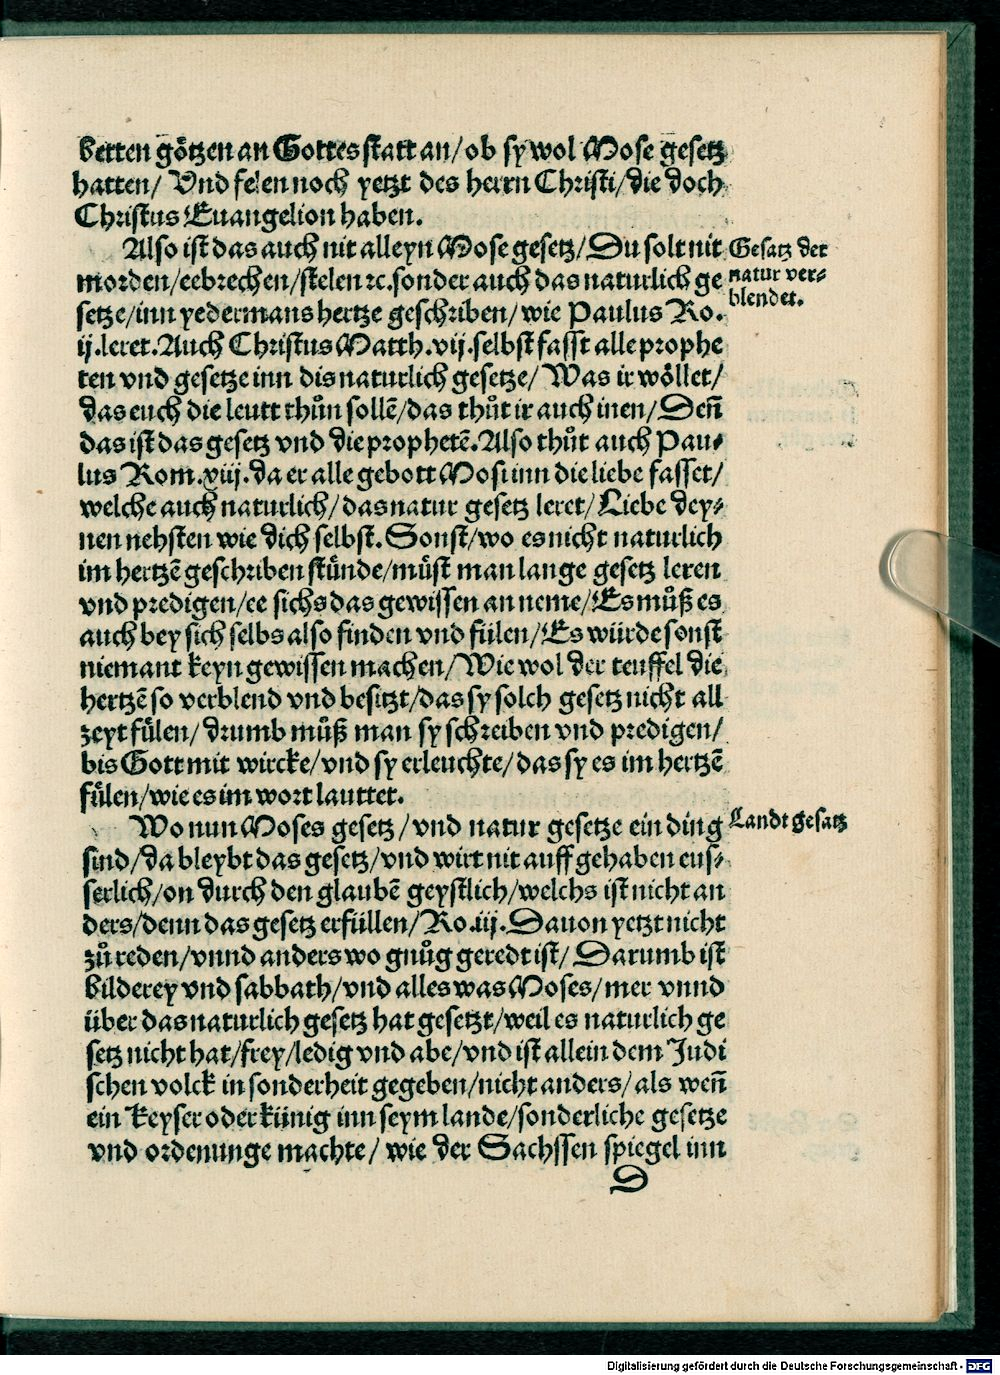 betten götzen an Gottes statt an/ ob sy wol Mose gesetz
hatten/ Vnd felen noch yetzt des herrn Christi/ die doch
Christus Euangelion haben.
Also ist das auch nit alleyn Mose gesetz/ Du solt nit
morden/ eebrechen/ stelen ꝛc. sonder auch das naturlich ge
setze/ inn yedermans hertze geschriben/ wie Paulus Ro.
ij. leret. Auch Christus Matth. vij. selbst fasst alle prophe
ten vnd gesetze inn dis naturlich gesetze/ Was ir wöllet/
das euch die leutt thůn sollē/ das thůt ir auch inen/ Deñ
das ist das gesetz vnd die prophetē. Also thůt auch Pau⸗
lus Rom. xiij. da er alle gebott Mosi inn die liebe fasset/
welche auch naturlich/ das natur gesetz leret/ Liebe dey⸗
nen nehsten wie dich selbst. Sonst/ wo es nicht naturlich
im hertzē geschriben stünde/ müst man lange gesetz leren
vnd predigen/ ee sichs das gewissen an neme/ Es můß es
auch bey sich selbs also finden vnd fülen/ Es würde sonst
niemant keyn gewissen machen/ Wie wol der teuffel die
hertzē so verblend vnd besitzt/ das sy solch gesetz nicht all
zeyt fülen/ drumb můß man sy schreiben vnd predigen/
bis Gott mit wircke/ vnd sy erleuchte/ das sy es im hertzē
fülen/ wie es im wort lauttet.
Wo nun Moses gesetz/ vnd natur gesetze ein ding
sind/ da bleybt das gesetz/ vnd wirt nit auff gehaben eus⸗
serlich/ on durch den glaubē geystlich/ welchs ist nicht an
ders/ denn das gesetz erfüllen/ Ro. iij. Dauon yetzt nicht
zů reden/ vnnd anders wo gnůg geredt ist/ Darumb ist
bilderey vnd sabbath/ vnd alles was Moses/ mer vnnd
über das naturlich gesetz hat gesetzt/ weil es naturlich ge
setz nicht hat/ frey/ ledig vnd abe/ vnd ist allein dem Judi
schen volck in sonderheit gegeben/ nicht anders/ als weñ
ein keyser oder künig inn seym lande/ sonderliche gesetze
vnd ordenunge machte/ wie der Sachssen spiegel inn
D
Gesatz der
natur ver⸗
blendet.
Landt gesatz
Digitalisierung gefördert durch die Deutsche Forschungsgemeinschaft - DFG